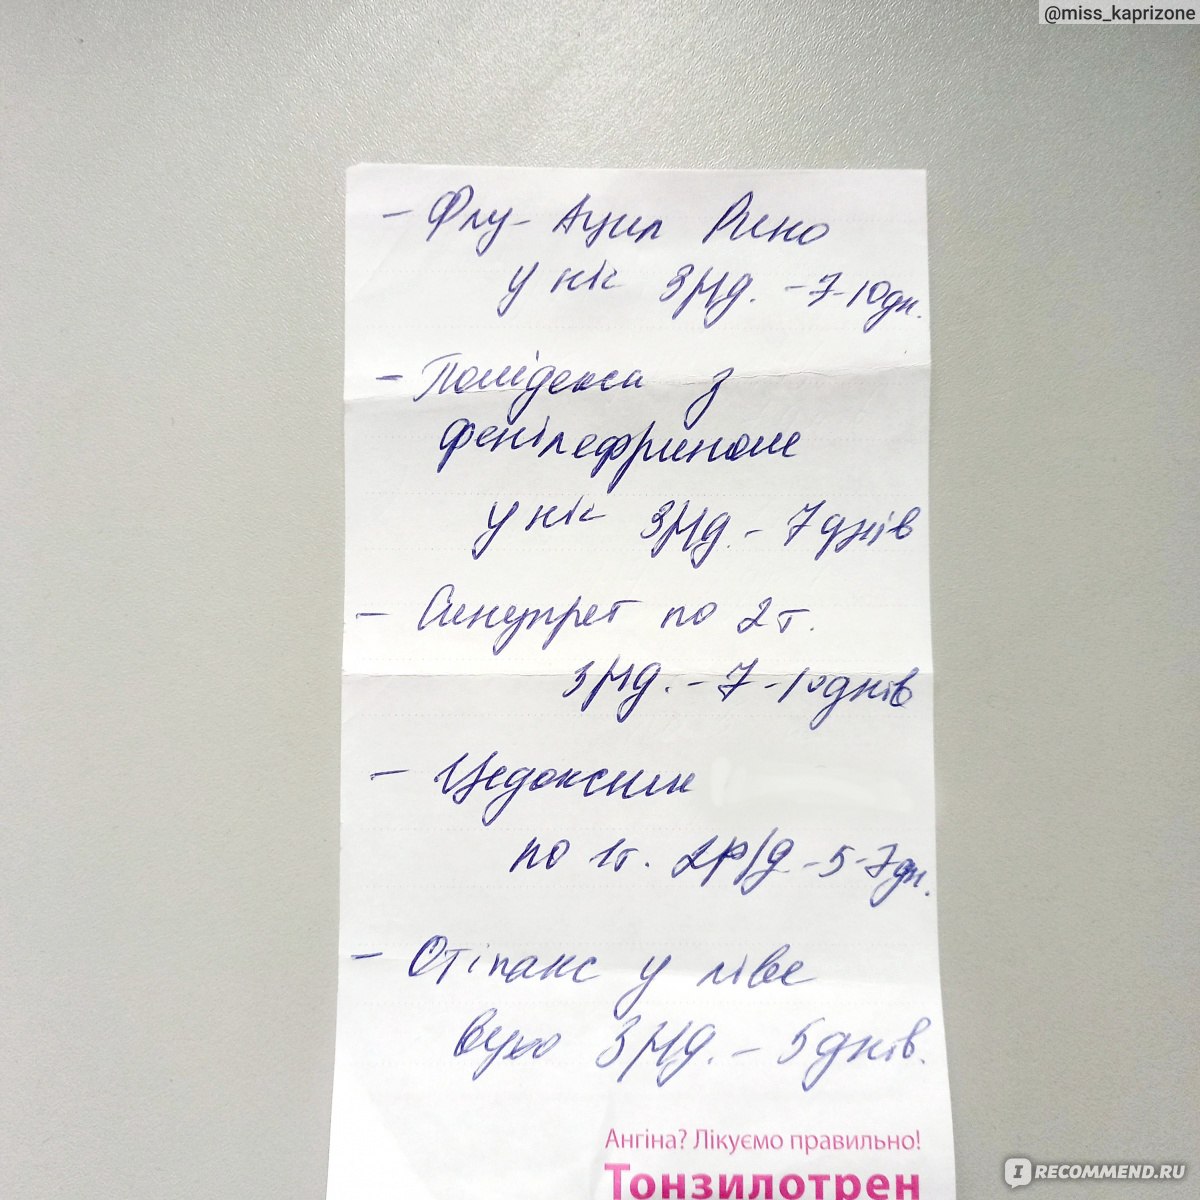 @miss_kaprizone
- Флу-Ацил Рино
у ніс 3р/д. - 7-10дн.
- Полідекса з
фенілефрином
у ніс 3р/д. - 7 днів
- Синупрет по 2т.
3р/д. - 7-10 днів
- Цедоксим
по 1т. 2р/д - 5-7дн.
- Отіпакс у ліве
вухо 3р/д. - 5 днів.
Ангіна? Лікуємо правильно!
Тонзилотрен
IRECOMMEND.RU